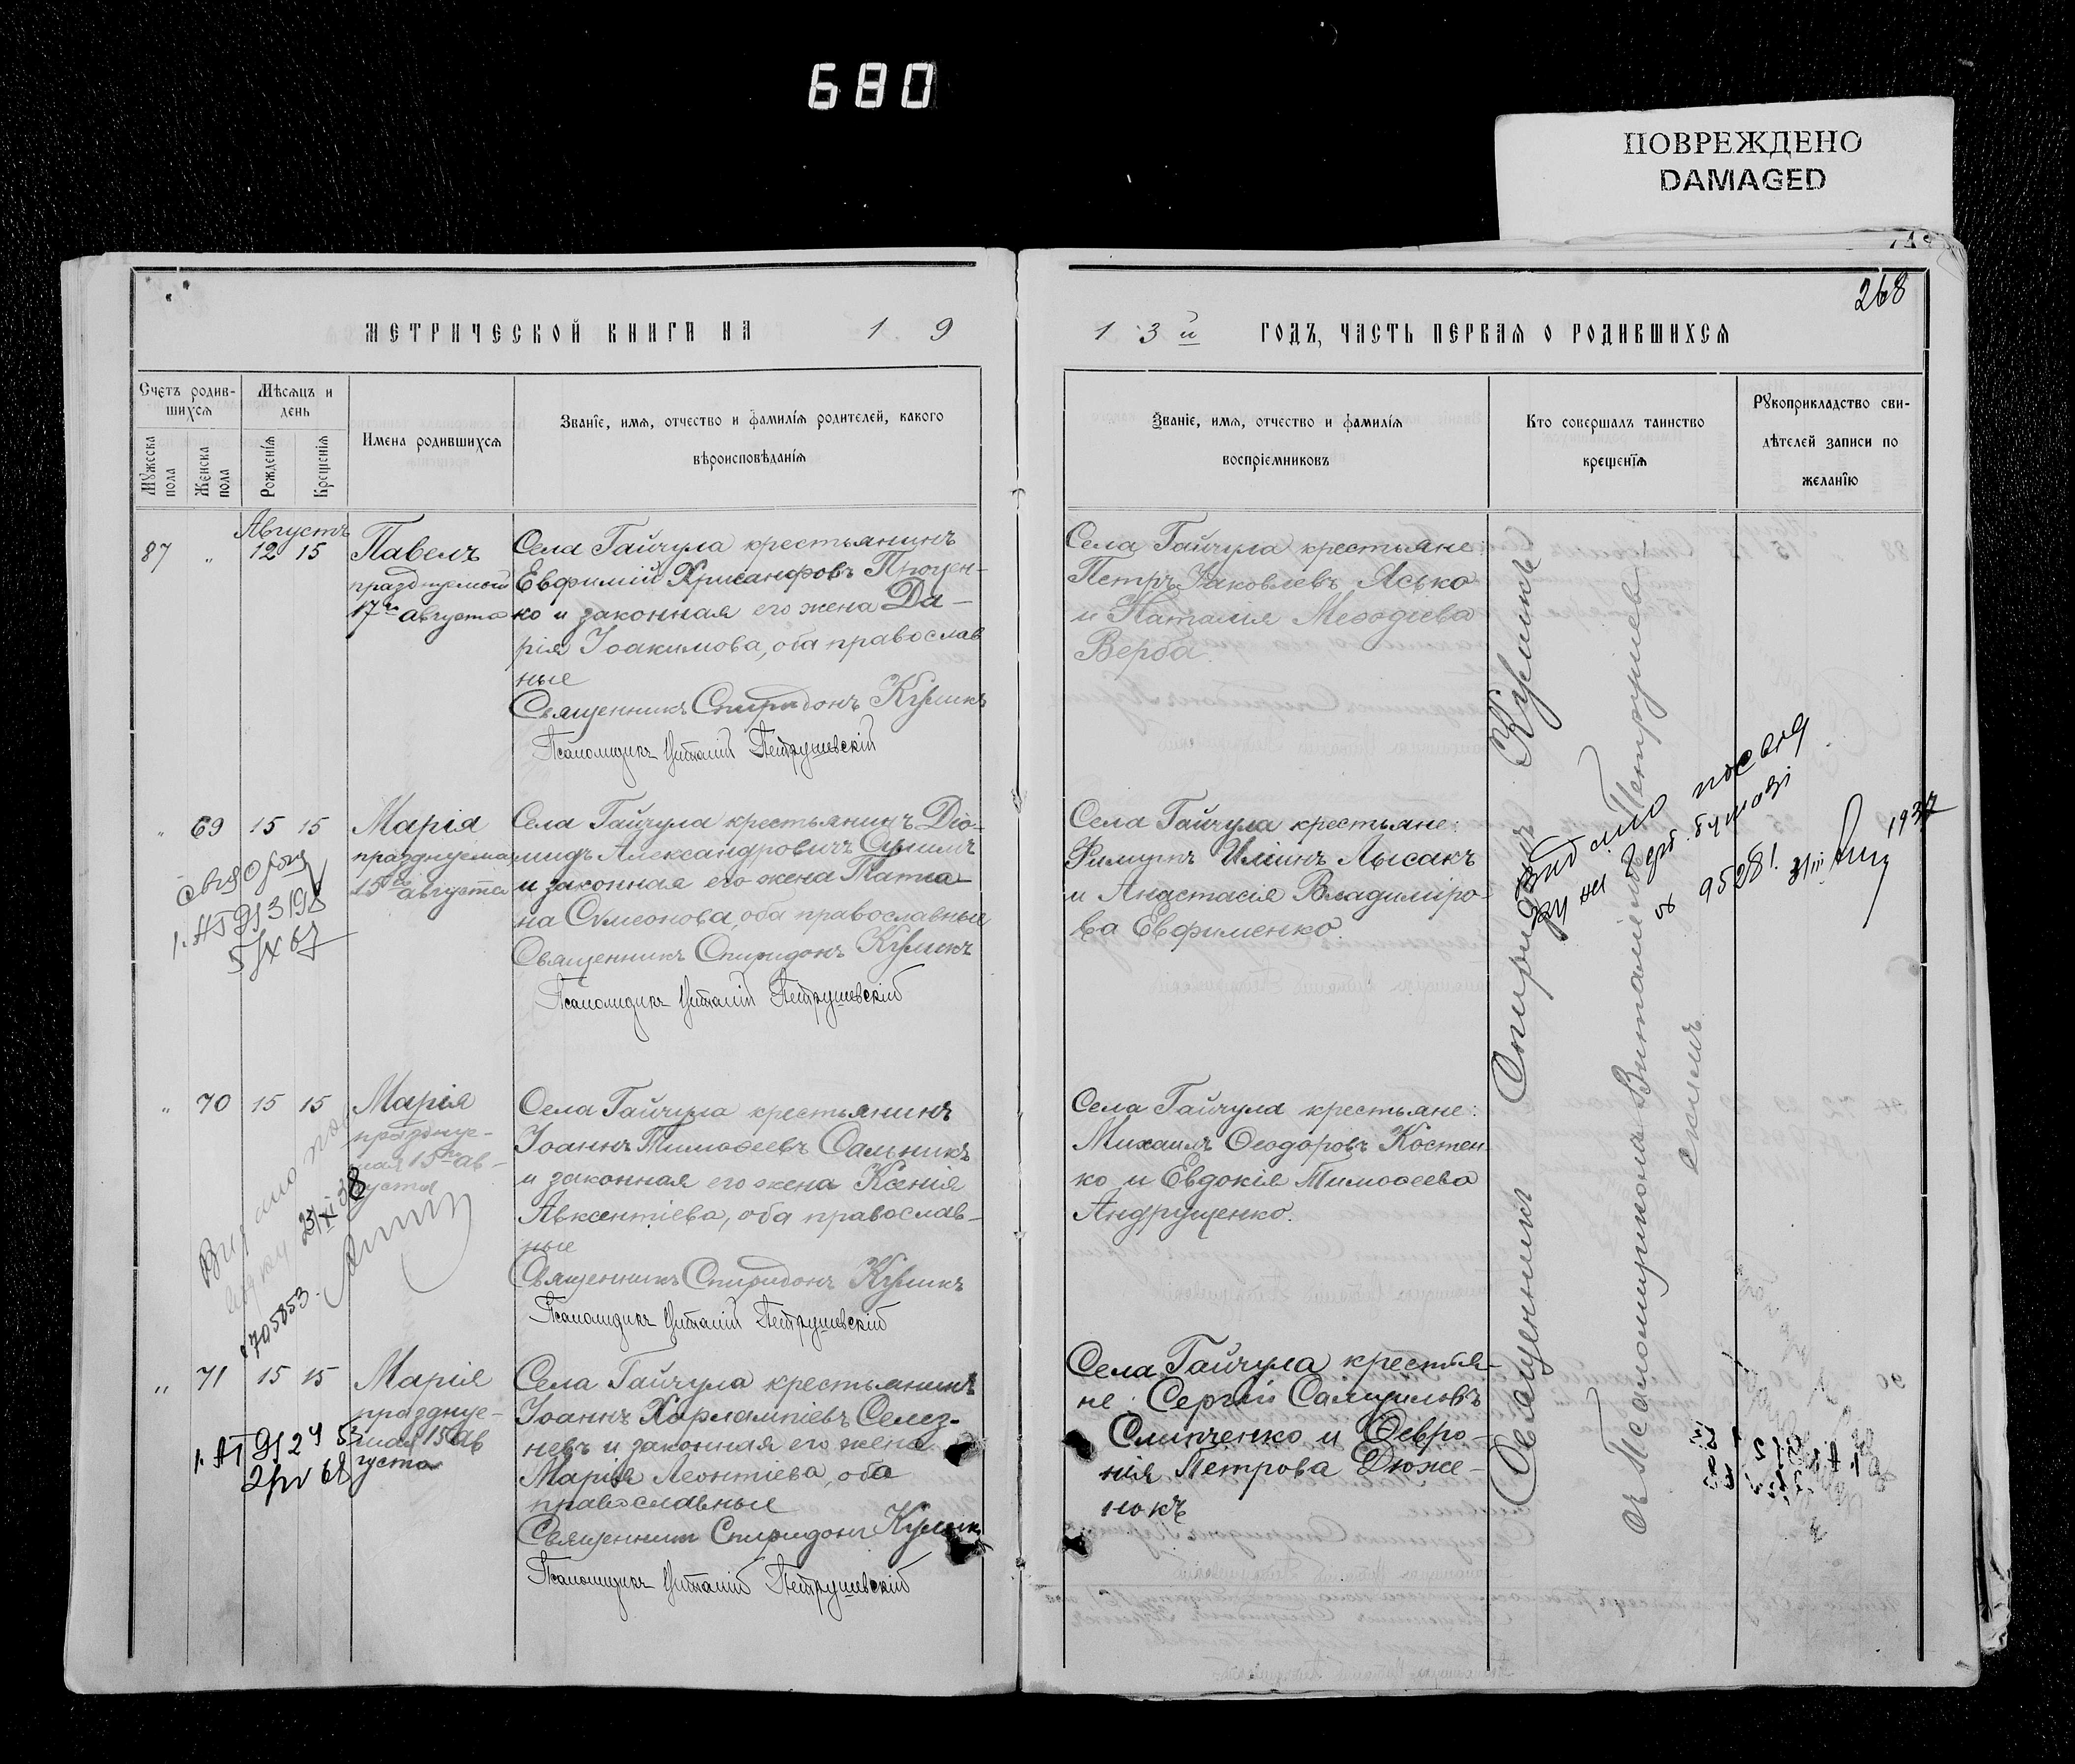 680
ПОВРЕЖДЕНО
DAMAGED
268
МЕТРИЧЕСКОЙ КНИГИ НА 1 9
1 3й ГОДЪ, ЧАСТЬ ПЕРВАЯ О РОДИВШИХСЯ
Счетъ родив-
шихся
Мѣсяцъ и
день
Мужеска
пола
Женска
пола
Рожденія
Крещенія
Имена родившихся
Званіе, имя, отчество и фамилія родителей, какого
вѣроисповѣданія
Званіе, имя, отчество и фамилія
воспріемниковъ
Кто совершалъ таинство
крещенія
Рукоприкладство сви-
дѣтелей записи по
желанію
Августъ
87 " 12 15
Павелъ
празднуемый
17го августа
Села Гайчула крестьянинъ
Евфимій Хрисанфовъ Процен-
ко и законная его жена Да-
рія Іоакимова, оба православ
ные
Священникъ Спиридонъ Куликъ
Псаломщикъ Виталій Петрушевскій
Села Гайчула крестьяне:
Петръ Іаковлевъ Ясько
и Наталія Меѳодіева
Верба.
" 69 15 15
Марія
празднуемая
15го августа
Села Гайчула крестьянинъ Діо-
мидъ Александровичъ
и законная его жена Татіа-
на Сѵмеонова, оба православные
Священникъ Спиридонъ Куликъ
Псаломщикъ Виталій Петрушевскій
Села Гайчула крестьяне:
Филиппъ Иліинъ Лысакъ
и Анастасія Владиміро-
ва Евфименко.
" 70 15 15
Марія
праздну-
мая 15го ав-
густа
Села Гайчула крестьянинъ
Іоаннъ Тимоѳеевъ Сальникъ
и законная его жена Ксенія
Авксентіева, оба православ-
ные
Священникъ Спиридонъ Куликъ
Псаломщикъ Виталій Петрушевскій
Села Гайчула крестьяне:
Михаилъ Ѳеодоровъ Костен
ко и Евдокія Тимоѳеева
Андрущенко.
705853
" 71 15 15
Марія
праздуе-
мая 15 ав
густа
Села Гайчула крестьянинъ
Іоаннъ Харлампіевъ Селез-
невъ и законная его жена
Марія Леонтіева, оба
православные
Священникъ Спиридонъ Куликъ
Псаломщикъ Виталій Петрушевскій
Села Гайчула крестья-
не: Сергій Самуиловъ
Слипченко и Ѳевро-
нія Петрова Дюже-
нокъ
Священникъ Спиридонъ Куликъ
съ Псаломщикомъ Виталіемъ Петрушев-
скимъ.
9528!
1937